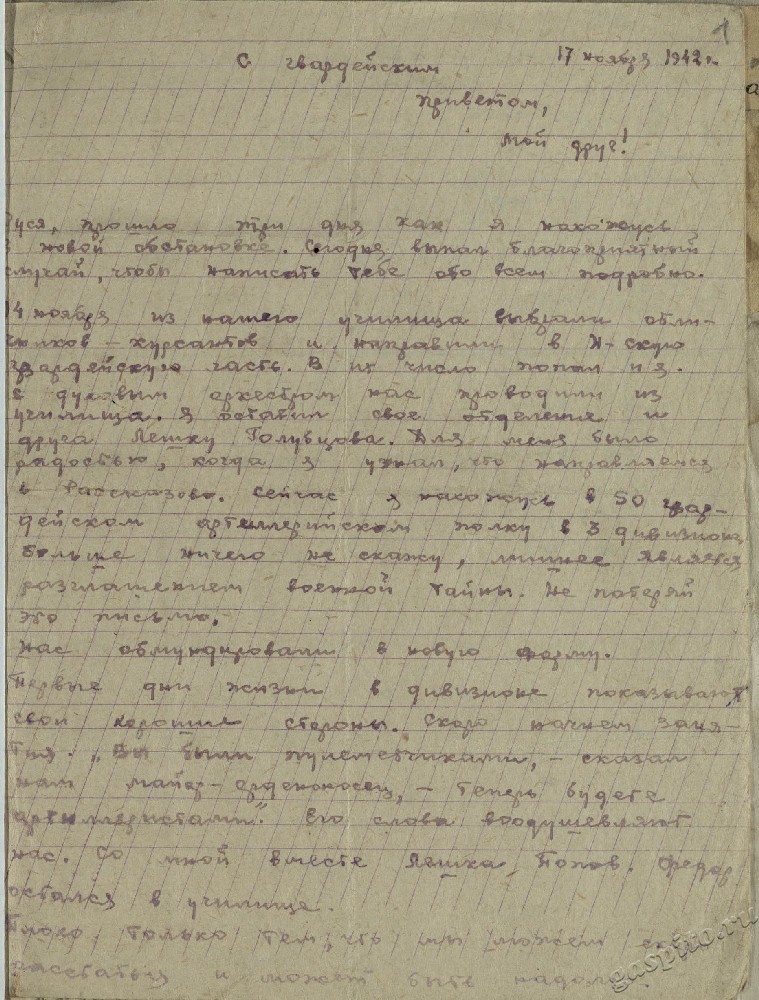 1
17 ноября 1942 г.
С гвардейским
приветом,
мой друг!
прошло три дня как я нахожусь
новой обстановке. Сегодне выпал благоприятный
случай, чтобы написать тебе обо всем подробно.
14 ноября из нашего училища выбрали отли-
чников - курсантов и направили в Н-скую
гвардейскую часть. В их число попал и я.
с духовым оркестром нас проводили из
училища. Я оставил свое отделение и
друга Лешку Голубцова. Для меня было
радостью, когда я узнал, что направляемся
в Рассказово. Сейчас я нахожусь в 50 гвар-
дейском артеллерийском полку в 3 дивизионе
Больше ничего не скажу, лишнее является
разглашением военной тайны. Не потеряй
это письмо.
Нас обмундировали в новую форму.
Первые дни жизни в дивизионе показывают
свои хорошие стороны. Скоро начнем заня-
тия. „Вы были пулеметчиками, - сказал
нам майор - орденоносец, - теперь будете
артиллеристами". Его слова воодушевляют
нас. Со мной вместе Лешка Попов. Федор
остался в училище.
Плохо только тем, что мы можем
расстаться и может быть
gaspito.ru